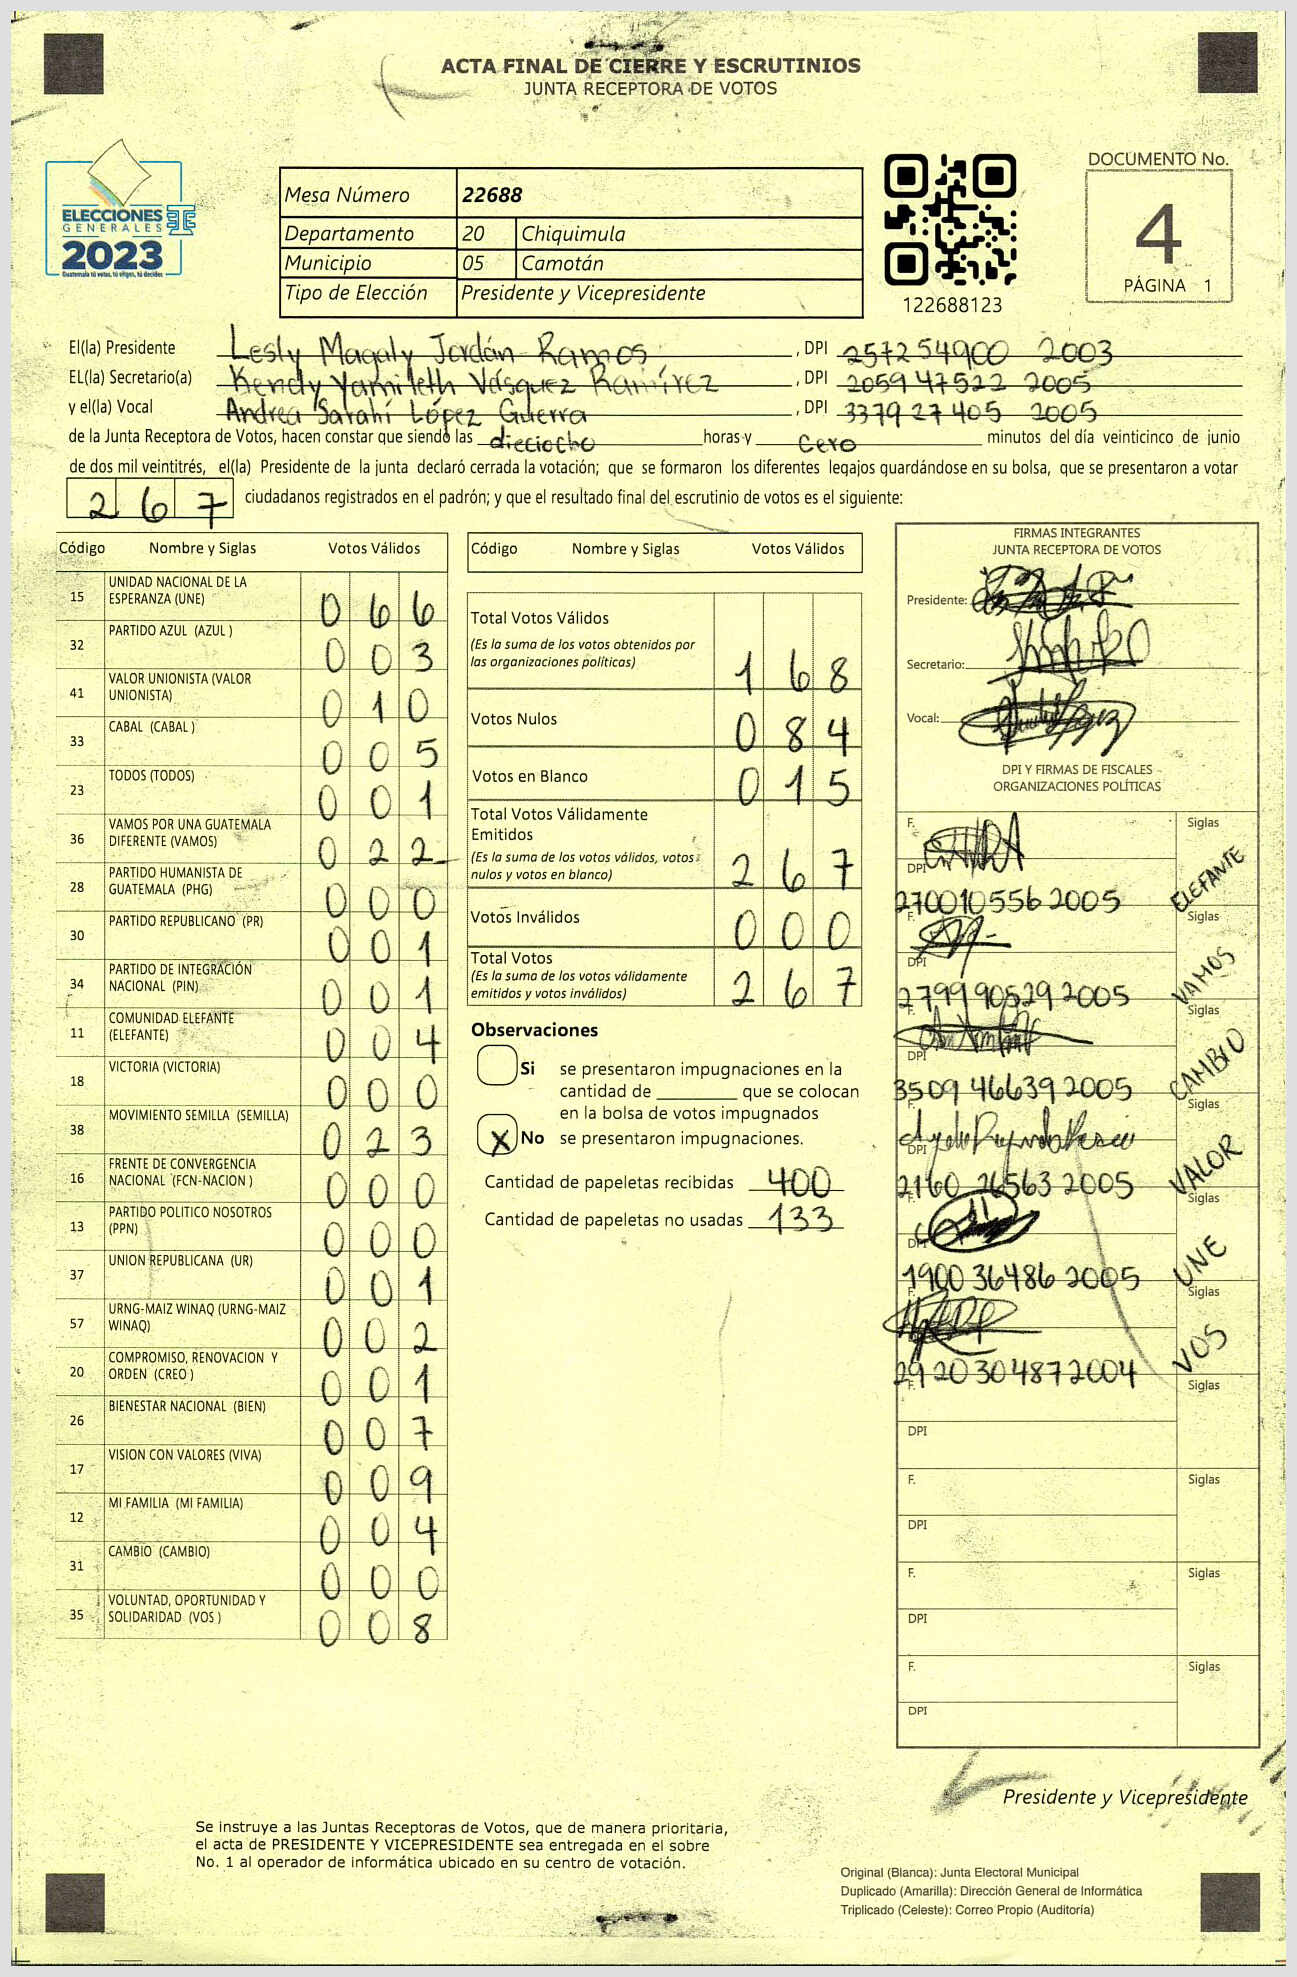 ACTA FINAL DE CIERRE Y ESCRUTINIOS
JUNTA RECEPTORA DE VOTOS
ELECCIONES
GENERALES
2023
Guatemala tú votas, tú eliges, tú decides
Mesa Número 22688
Departamento 20 Chiquimula
Municipio 05 Camotán
Tipo de Elección Presidente y Vicepresidente
122688123
DOCUMENTO No.
4
PÁGINA 1
El(la) Presidente Lesly Magaly Jordán Ramos, DPI 2572 54900 2003
EL(la) Secretario(a) Kendy Yamileth Vásquez Ramírez, DPI 2059 47522 2005
y el(la) Vocal Andrea Sarahí López Guerra, DPI 3379 27 405 2005
de la Junta Receptora de Votos, hacen constar que siendo las dieciocho horas y cero minutos del día veinticinco de junio
de dos mil veintitrés, el(la) Presidente de la junta declaró cerrada la votación; que se formaron los diferentes legajos guardándose en su bolsa, que se presentaron a votar
267 ciudadanos registrados en el padrón; y que el resultado final del escrutinio de votos es el siguiente:
Código Nombre y Siglas Votos Válidos
15 UNIDAD NACIONAL DE LA ESPERANZA (UNE) 066
32 PARTIDO AZUL (AZUL ) 003
41 VALOR UNIONISTA (VALOR UNIONISTA) 010
33 CABAL (CABAL ) 005
23 TODOS (TODOS) 001
36 VAMOS POR UNA GUATEMALA DIFERENTE (VAMOS) 022
28 PARTIDO HUMANISTA DE GUATEMALA (PHG) 000
30 PARTIDO REPUBLICANO (PR) 001
34 PARTIDO DE INTEGRACIÓN NACIONAL (PIN) 001
11 COMUNIDAD ELEFANTE (ELEFANTE) 004
18 VICTORIA (VICTORIA) 000
38 MOVIMIENTO SEMILLA (SEMILLA) 023
16 FRENTE DE CONVERGENCIA NACIONAL (FCN-NACION ) 000
13 PARTIDO POLITICO NOSOTROS (PPN) 000
37 UNION REPUBLICANA (UR) 001
57 URNG-MAIZ WINAQ (URNG-MAIZ WINAQ) 002
20 COMPROMISO, RENOVACION Y ORDEN (CREO ) 001
26 BIENESTAR NACIONAL (BIEN) 007
17 VISION CON VALORES (VIVA) 009
12 MI FAMILIA (MI FAMILIA) 004
31 CAMBIO (CAMBIO) 000
35 VOLUNTAD, OPORTUNIDAD Y SOLIDARIDAD (VOS ) 008
Código Nombre y Siglas Votos Válidos
Total Votos Válidos 168
(Es la suma de los votos obtenidos por
las organizaciones políticas)
Votos Nulos 084
Votos en Blanco 015
Total Votos Válidamente
Emitidos 267
(Es la suma de los votos válidos, votos
nulos y votos en blanco)
Votos Inválidos 000
Total Votos 267
(Es la suma de los votos válidamente
emitidos y votos inválidos)
Observaciones
Si se presentaron impugnaciones en la
cantidad de ________ que se colocan
en la bolsa de votos impugnados
X No se presentaron impugnaciones.
Cantidad de papeletas recibidas 400
Cantidad de papeletas no usadas 133
FIRMAS INTEGRANTES
JUNTA RECEPTORA DE VOTOS
Presidente:
Secretario:
Vocal:
DPI Y FIRMAS DE FISCALES
ORGANIZACIONES POLÍTICAS
F. Siglas
DPI 2700 10556 2005 ELEFANTE
F. Siglas
DPI 2799 90529 2005 VAMOS
F. Siglas
DPI 3509 46639 2005 CAMBIO
F. Siglas
DPI 2160 26563 2005 VALOR
F. Siglas
DPI 1900 36486 2005 UNE
F. Siglas
DPI 2920 30487 2004 VOS
F. Siglas
DPI
F. Siglas
DPI
F. Siglas
DPI
F. Siglas
DPI
Presidente y Vicepresidente
Se instruye a las Juntas Receptoras de Votos, que de manera prioritaria,
el acta de PRESIDENTE Y VICEPRESIDENTE sea entregada en el sobre
No. 1 al operador de informática ubicado en su centro de votación.
Original (Blanca): Junta Electoral Municipal
Duplicado (Amarilla): Dirección General de Informática
Triplicado (Celeste): Correo Propio (Auditoría)